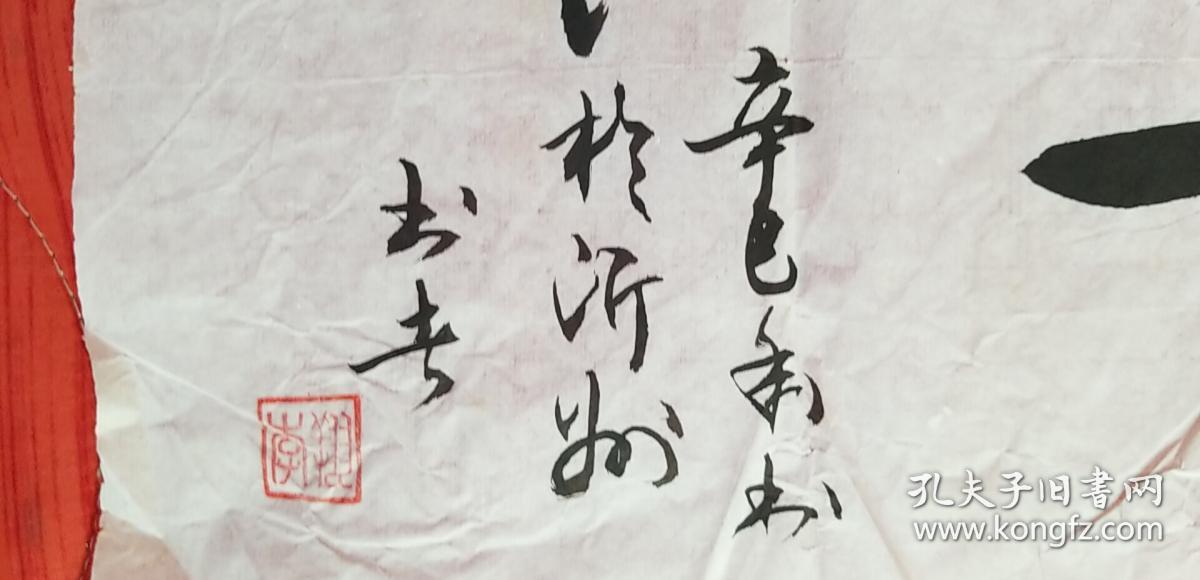 辛巳秀书
於沂州
书者
孔夫子旧書网
www.kongfz.com